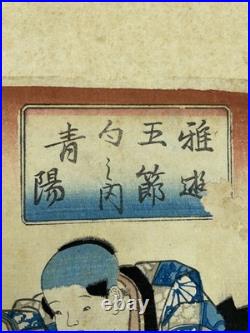 雅遊
五節
句之内
青陽